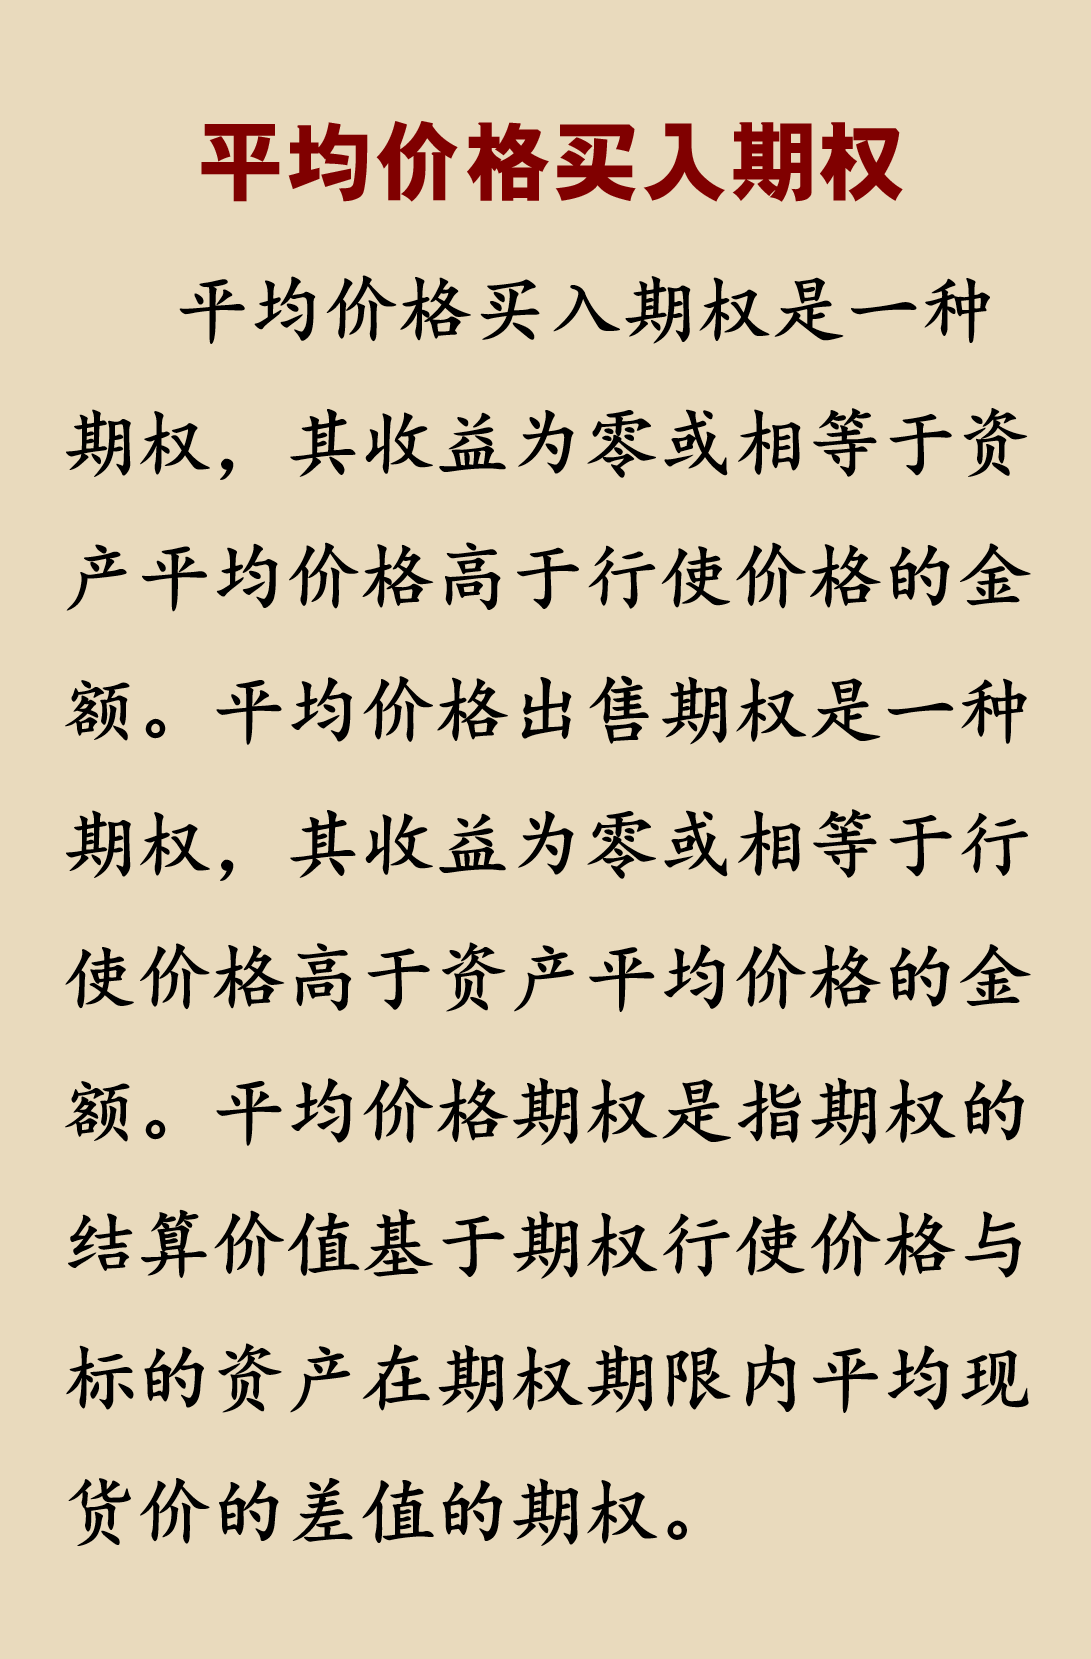 平均价格买入期权
平均价格买入期权是一种
期权，其收益为零或相等于资
产平均价格高于行使价格的金
额。平均价格出售期权是一种
期权，其收益为零或相等于行
使价格高于资产平均价格的金
额。平均价格期权是指期权的
结算价值基于期权行使价格与
标的资产在期权期限内平均现
货价的差值的期权。